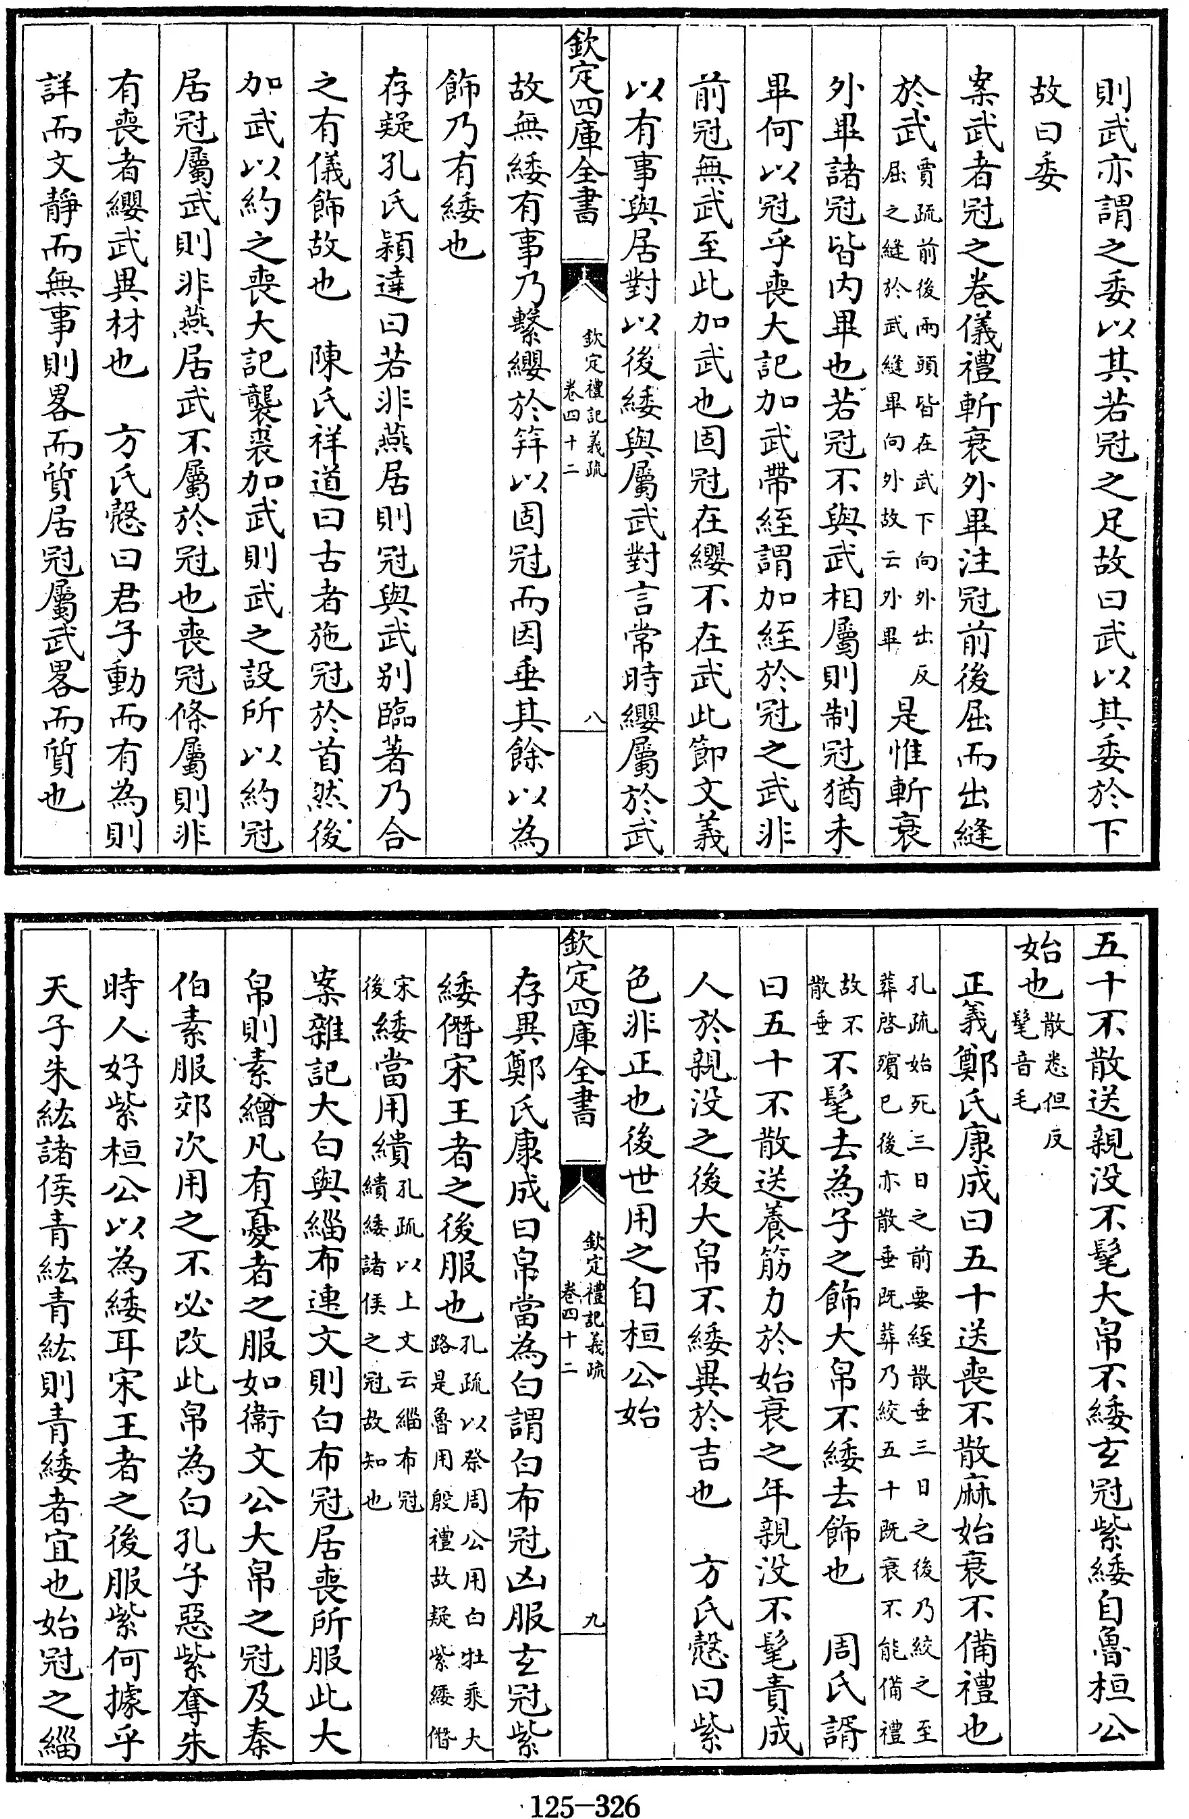 則武亦謂之委以其若冠之足故曰武以其委於下
故曰委
案武者冠之卷儀禮斬衰外畢注冠前後屈而出縫
於武賈疏前後兩頭皆在武下向外出反屈之縫於武縫畢向外故云外畢是惟斬衰
外畢諸冠皆内畢也若冠不與武相屬則制冠猶未
畢何以冠乎喪大記加武帶絰謂加絰於冠之武非
前冠無武至此加武也固冠在纓不在武此節文義
以有事與居對以後緌與屬武對言常時纓屬於武
欽定四庫全書
欽定禮記義疏
卷四十二
八
故無緌有事乃繫纓於笄以固冠而因垂其餘以為
飾乃有緌也
存疑孔氏穎達曰若非燕居則冠與武别臨著乃合
之有儀飾故也　陳氏祥道曰古者施冠於首然後
加武以約之喪大記襲裘加武則武之設所以約冠
居冠屬武則非燕居武不屬於冠也喪冠條屬則非
有喪者纓武異材也　方氏慤曰君子動而有為則
詳而文靜而無事則畧而質居冠屬武畧而質也
五十不散送親没不髦大帛不緌玄冠紫緌自魯桓公
始也散悉但反髦音毛
正義鄭氏康成曰五十送喪不散麻始衰不備禮也
孔疏始死三日之前要絰散垂三日之後乃絞之至葬啓殯已後亦散垂既葬乃絞五十既衰不能備禮
故不散垂不髦去為子之飾大帛不緌去飾也　周氏諝
曰五十不散送養筋力於始衰之年親没不髦責成
人於親没之後大帛不緌異於吉也　方氏慤曰紫
色非正也後世用之自桓公始
欽定四庫全書
欽定禮記義疏
卷四十二
九
存異鄭氏康成曰帛當為白謂白布冠凶服玄冠紫
緌僭宋王者之後服也孔疏以祭周公用白牡乘大路是魯用殷禮故疑紫緌僭
宋後緌當用繢孔疏以上文云緇布冠繢緌諸侯之冠故知也
案雜記大白與緇布連文則白布冠居喪所服此大
帛則素繒凡有憂者之服如衞文公大帛之冠及秦
伯素服郊次用之不必改此帛為白孔子惡紫奪朱
時人好紫桓公以為緌耳宋王者之後服紫何據乎
天子朱紘諸侯青紘青紘則青緌者宜也始冠之緇
125-326